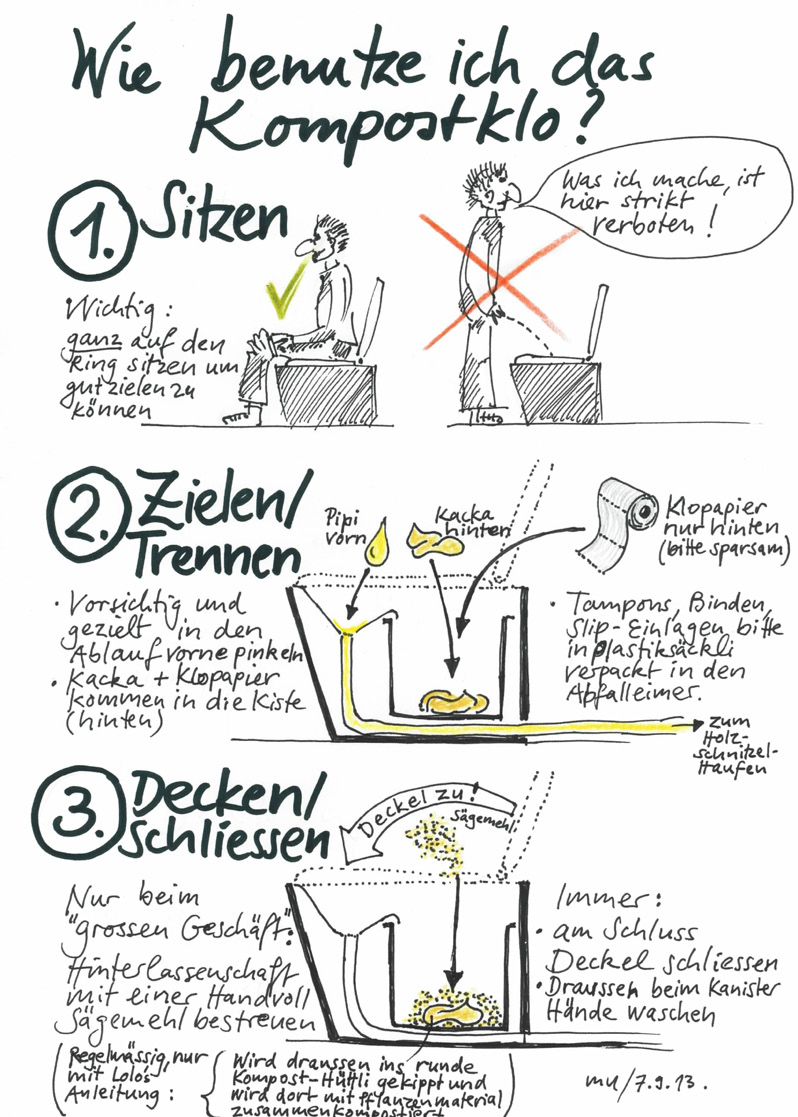 Wie benutze ich das
Kompostklo?
1. Sitzen
Wichtig:
ganz auf den
Ring sitzen um
gut zielen zu
können
Was ich mache, ist
hier strikt
verboten!
2. Zielen/
Trennen
Pipi
vorn
Kacka
hinten
Klopapier
nur hinten
(bitte sparsam)
• Vorsichtig und
gezielt in den
Ablauf vorne pinkeln
• Kacka + Klopapier
kommen in die Kiste
(hinten)
• Tampons, Binden,
Slip-Einlagen bitte
in Plastiksäckli
verpackt in den
Abfalleimer.
zum
Holz-
schnitzel-
Haufen
3. Decken/
Schliessen
Deckel zu!
Sägemehl
Nur beim
"grossen Geschäft":
Hinterlassenschaft
mit einer Handvoll
Sägemehl bestreuen
Immer:
• am Schluss
Deckel schliessen
• Draussen beim Kanister
Hände waschen
(Regelmässig, nur
mit Lolo's
Anleitung:
Wird draussen ins runde
Kompost-Hüttli gekippt und
wird dort mit Pflanzenmaterial
zusammenkompostiert)
mu/7.9.13.